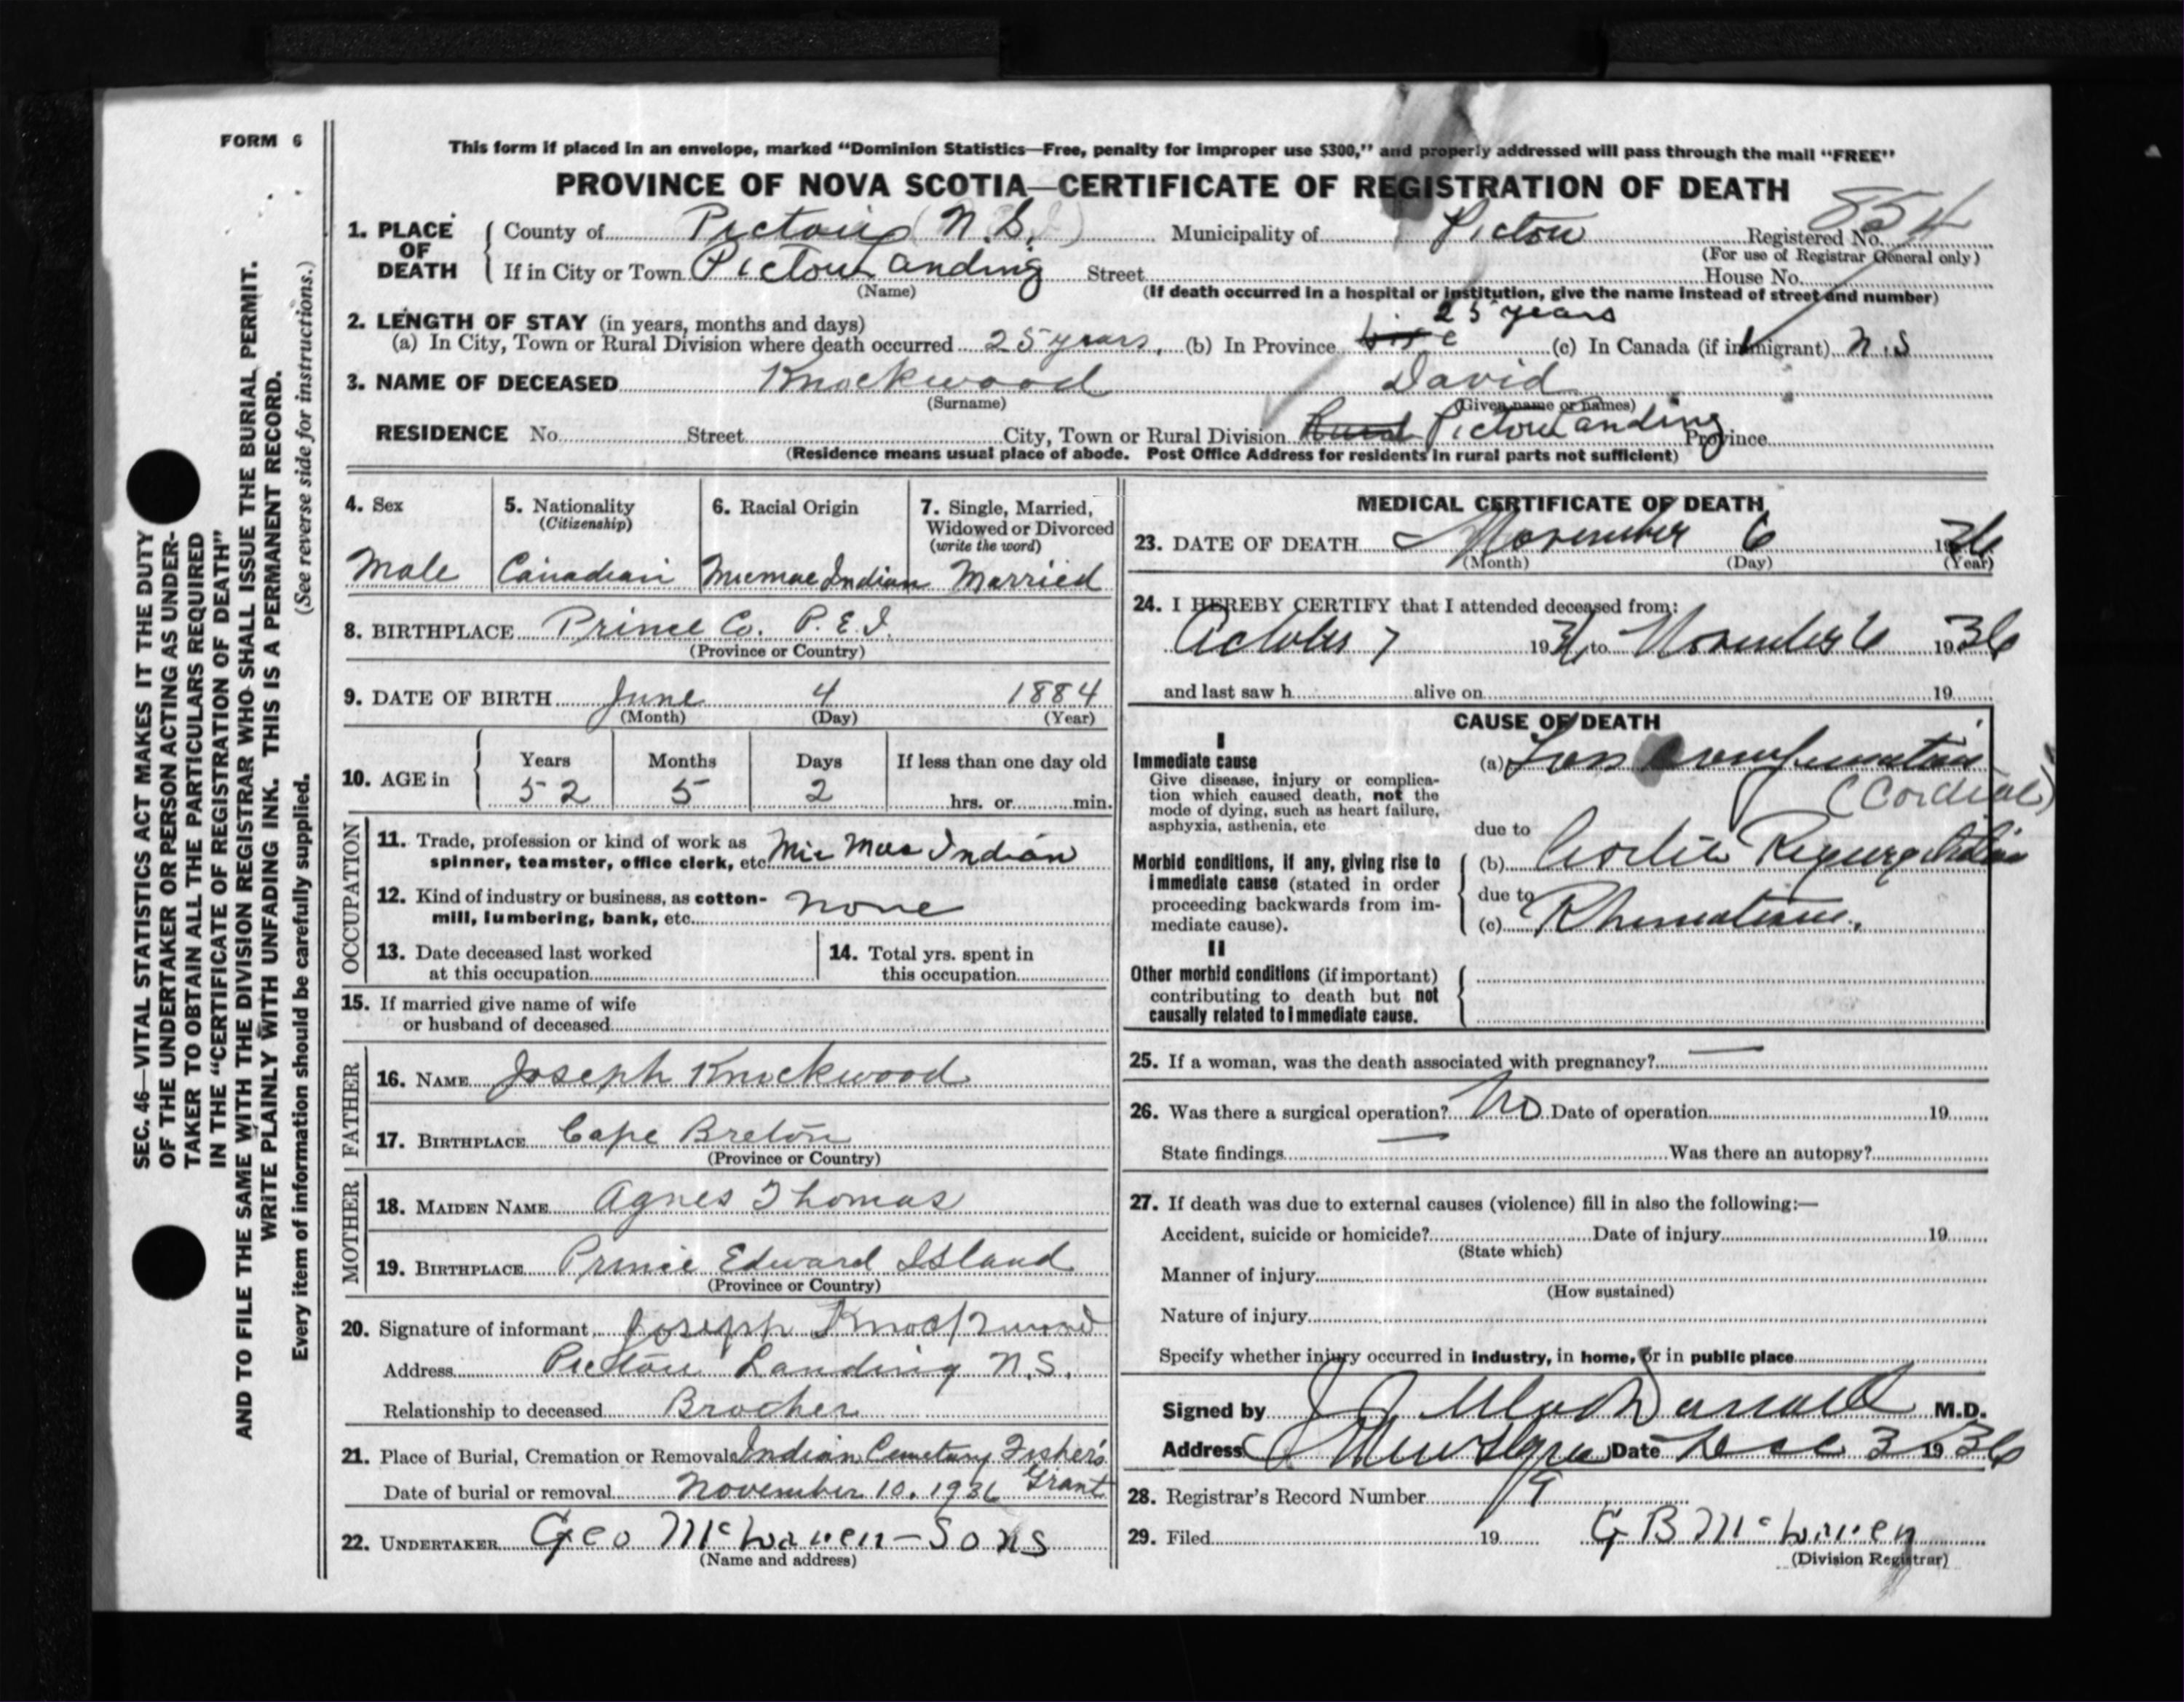 FORM 6
This form if placed in an envelope, marked “Dominion Statistics—Free, penalty for improper use $300,” and properly addressed will pass through the mail “FREE”
PROVINCE OF NOVA SCOTIA—CERTIFICATE OF REGISTRATION OF DEATH
854
1. PLACE OF DEATH
County of Pictou N.S. Municipality of Pictou Registered No.
(For use of Registrar General only)
If in City or Town Pictou Landing Street House No.
(Name)
(If death occurred in a hospital or institution, give the name instead of street and number)
2. LENGTH OF STAY (in years, months and days)
25 years
(a) In City, Town or Rural Division where death occurred 25 years. (b) In Province (c) In Canada (if immigrant) N.S
3. NAME OF DECEASED Knockwood David
(Surname) (Given name or names)
RESIDENCE No. Street City, Town or Rural Division Rural Pictou Landing Province
(Residence means usual place of abode. Post Office Address for residents in rural parts not sufficient)
4. Sex
Male
5. Nationality
(Citizenship)
Canadian
6. Racial Origin
Micmac Indian
7. Single, Married,
Widowed or Divorced
(write the word)
Married
8. BIRTHPLACE Prince Co. P.E.I.
(Province or Country)
9. DATE OF BIRTH June 4 1884
(Month) (Day) (Year)
10. AGE in
Years Months Days If less than one day old
52 5 2 hrs. or min.
OCCUPATION
11. Trade, profession or kind of work as
spinner, teamster, office clerk, etc. Mic Mac Indian
12. Kind of industry or business, as cotton-
mill, lumbering, bank, etc. none
13. Date deceased last worked
at this occupation
14. Total yrs. spent in
this occupation
15. If married give name of wife
or husband of deceased
FATHER
16. NAME Joseph Knockwood
17. BIRTHPLACE Cape Breton
(Province or Country)
MOTHER
18. MAIDEN NAME Agnes Thomas
19. BIRTHPLACE Prince Edward Island
(Province or Country)
20. Signature of informant Joseph Knockwood
Address Pictou Landing N.S.
Relationship to deceased Brother
21. Place of Burial, Cremation or Removal Indian Cemetary Fisher's
Grant
Date of burial or removal November 10. 1936
22. UNDERTAKER Geo - Sons
(Name and address)
MEDICAL CERTIFICATE OF DEATH
23. DATE OF DEATH November 6 1936
(Month) (Day) (Year)
24. I HEREBY CERTIFY that I attended deceased from:
October 7 193 to November 6 1936
and last saw h alive on 19
CAUSE OF DEATH
I
Immediate cause
Give disease, injury or complica-
tion which caused death, not the
mode of dying, such as heart failure,
asphyxia, asthenia, etc
(a) Loss compensation
(Cordial)
due to
Morbid conditions, if any, giving rise to
immediate cause (stated in order
proceeding backwards from im-
mediate cause).
(b) Aortic Regurgitation
due to
(c) Rheumatism.
II
Other morbid conditions (if important)
contributing to death but not
causally related to immediate cause.
25. If a woman, was the death associated with pregnancy? —
26. Was there a surgical operation? No Date of operation 19
State findings — Was there an autopsy?
27. If death was due to external causes (violence) fill in also the following:—
Accident, suicide or homicide? Date of injury 19
(State which)
Manner of injury
(How sustained)
Nature of injury
Specify whether injury occurred in industry, in home, or in public place
Signed by J. J. MacDonald M.D.
Address New Glasgow Date Dec 3 1936
28. Registrar's Record Number 19
29. Filed 19 G B
(Division Registrar)
SEC. 46—VITAL STATISTICS ACT MAKES IT THE DUTY
OF THE UNDERTAKER OR PERSON ACTING AS UNDER-
TAKER TO OBTAIN ALL THE PARTICULARS REQUIRED
IN THE “CERTIFICATE OF REGISTRATION OF DEATH”
AND TO FILE THE SAME WITH THE DIVISION REGISTRAR WHO SHALL ISSUE THE BURIAL PERMIT.
WRITE PLAINLY WITH UNFADING INK. THIS IS A PERMANENT RECORD.
Every item of information should be carefully supplied. (See reverse side for instructions.)